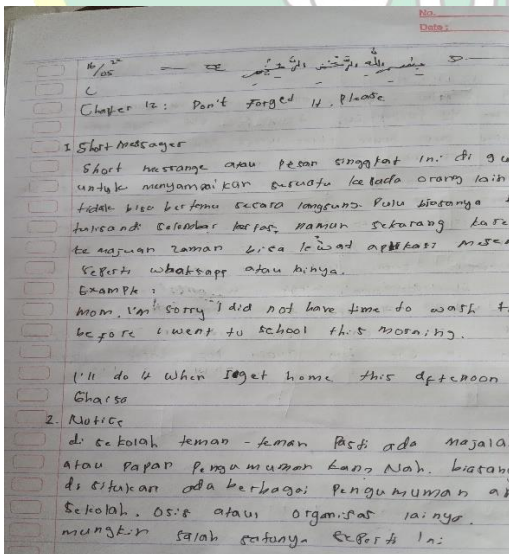 No.
Date:
16/05 22
بسم الله الرحمن الرحيم
Chapter 12: Don't Forged it, Please
1 Short messager
Short messange atau Pesan singgkat ini di gu
untuk menyampaikan sesuatu kelada orang lain
tidak bisa bertemu secara langsung. Dulu biasanya
tulisandi selembar kertas, namun sekarang kare
kemajuan zaman bisa lewad aplikasi mese
seperti whatsapp atau lainya.
Example :
mom, I'm sorry I did not have time to wash t
before i went to school this morning.
I'll do it when I get home this afternoon
Gharsa
2. Notice
di sekolah teman - teman Pasti ada majala
atau Papan Pengumuman kann Nah. biasan
disitukan ada berbagai Pengumuman a
Sekolah. Osis ataus organisas lainya.
mungkin salah satunya seperti ini